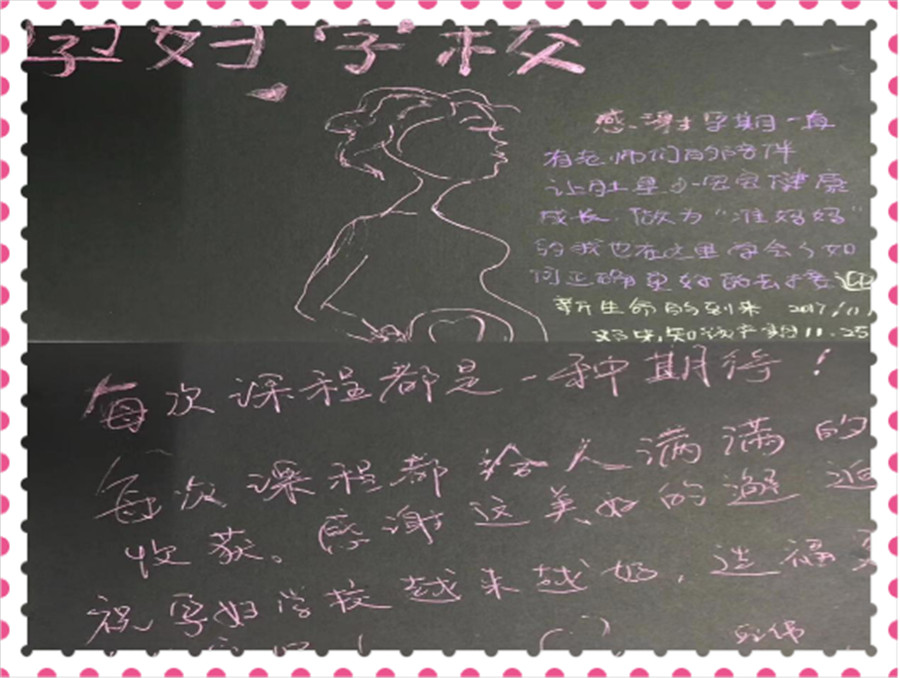 孕妇学校
感谢孕期一直
有老师们的陪伴
让肚里小宝宝健康
成长,做为“准妈妈”
的我也在这里学会了如
何正确更好的去接迎
新生命的到来 2017.11
预产期11.25
每次课程都是一种期待!
每次课程都给人满满的
收获。感谢这美好的邂逅
祝孕妇学校越来越好,造福